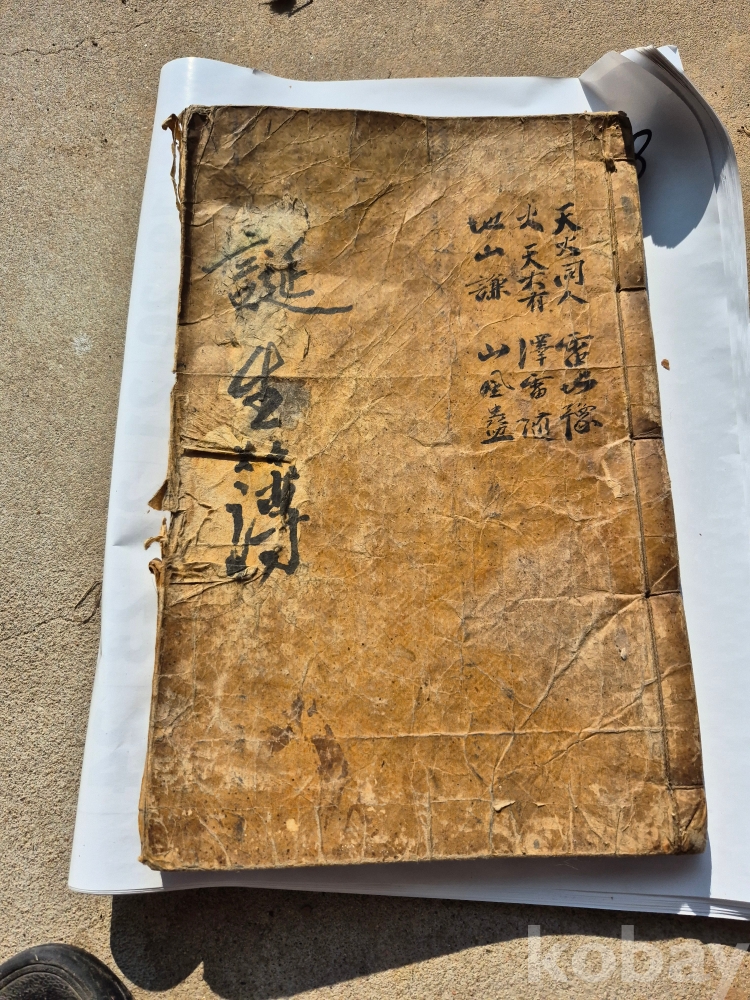 天火同人 雷地豫
火天大有 澤雷隨
地山謙 山風蠱
誕生簿
kobay